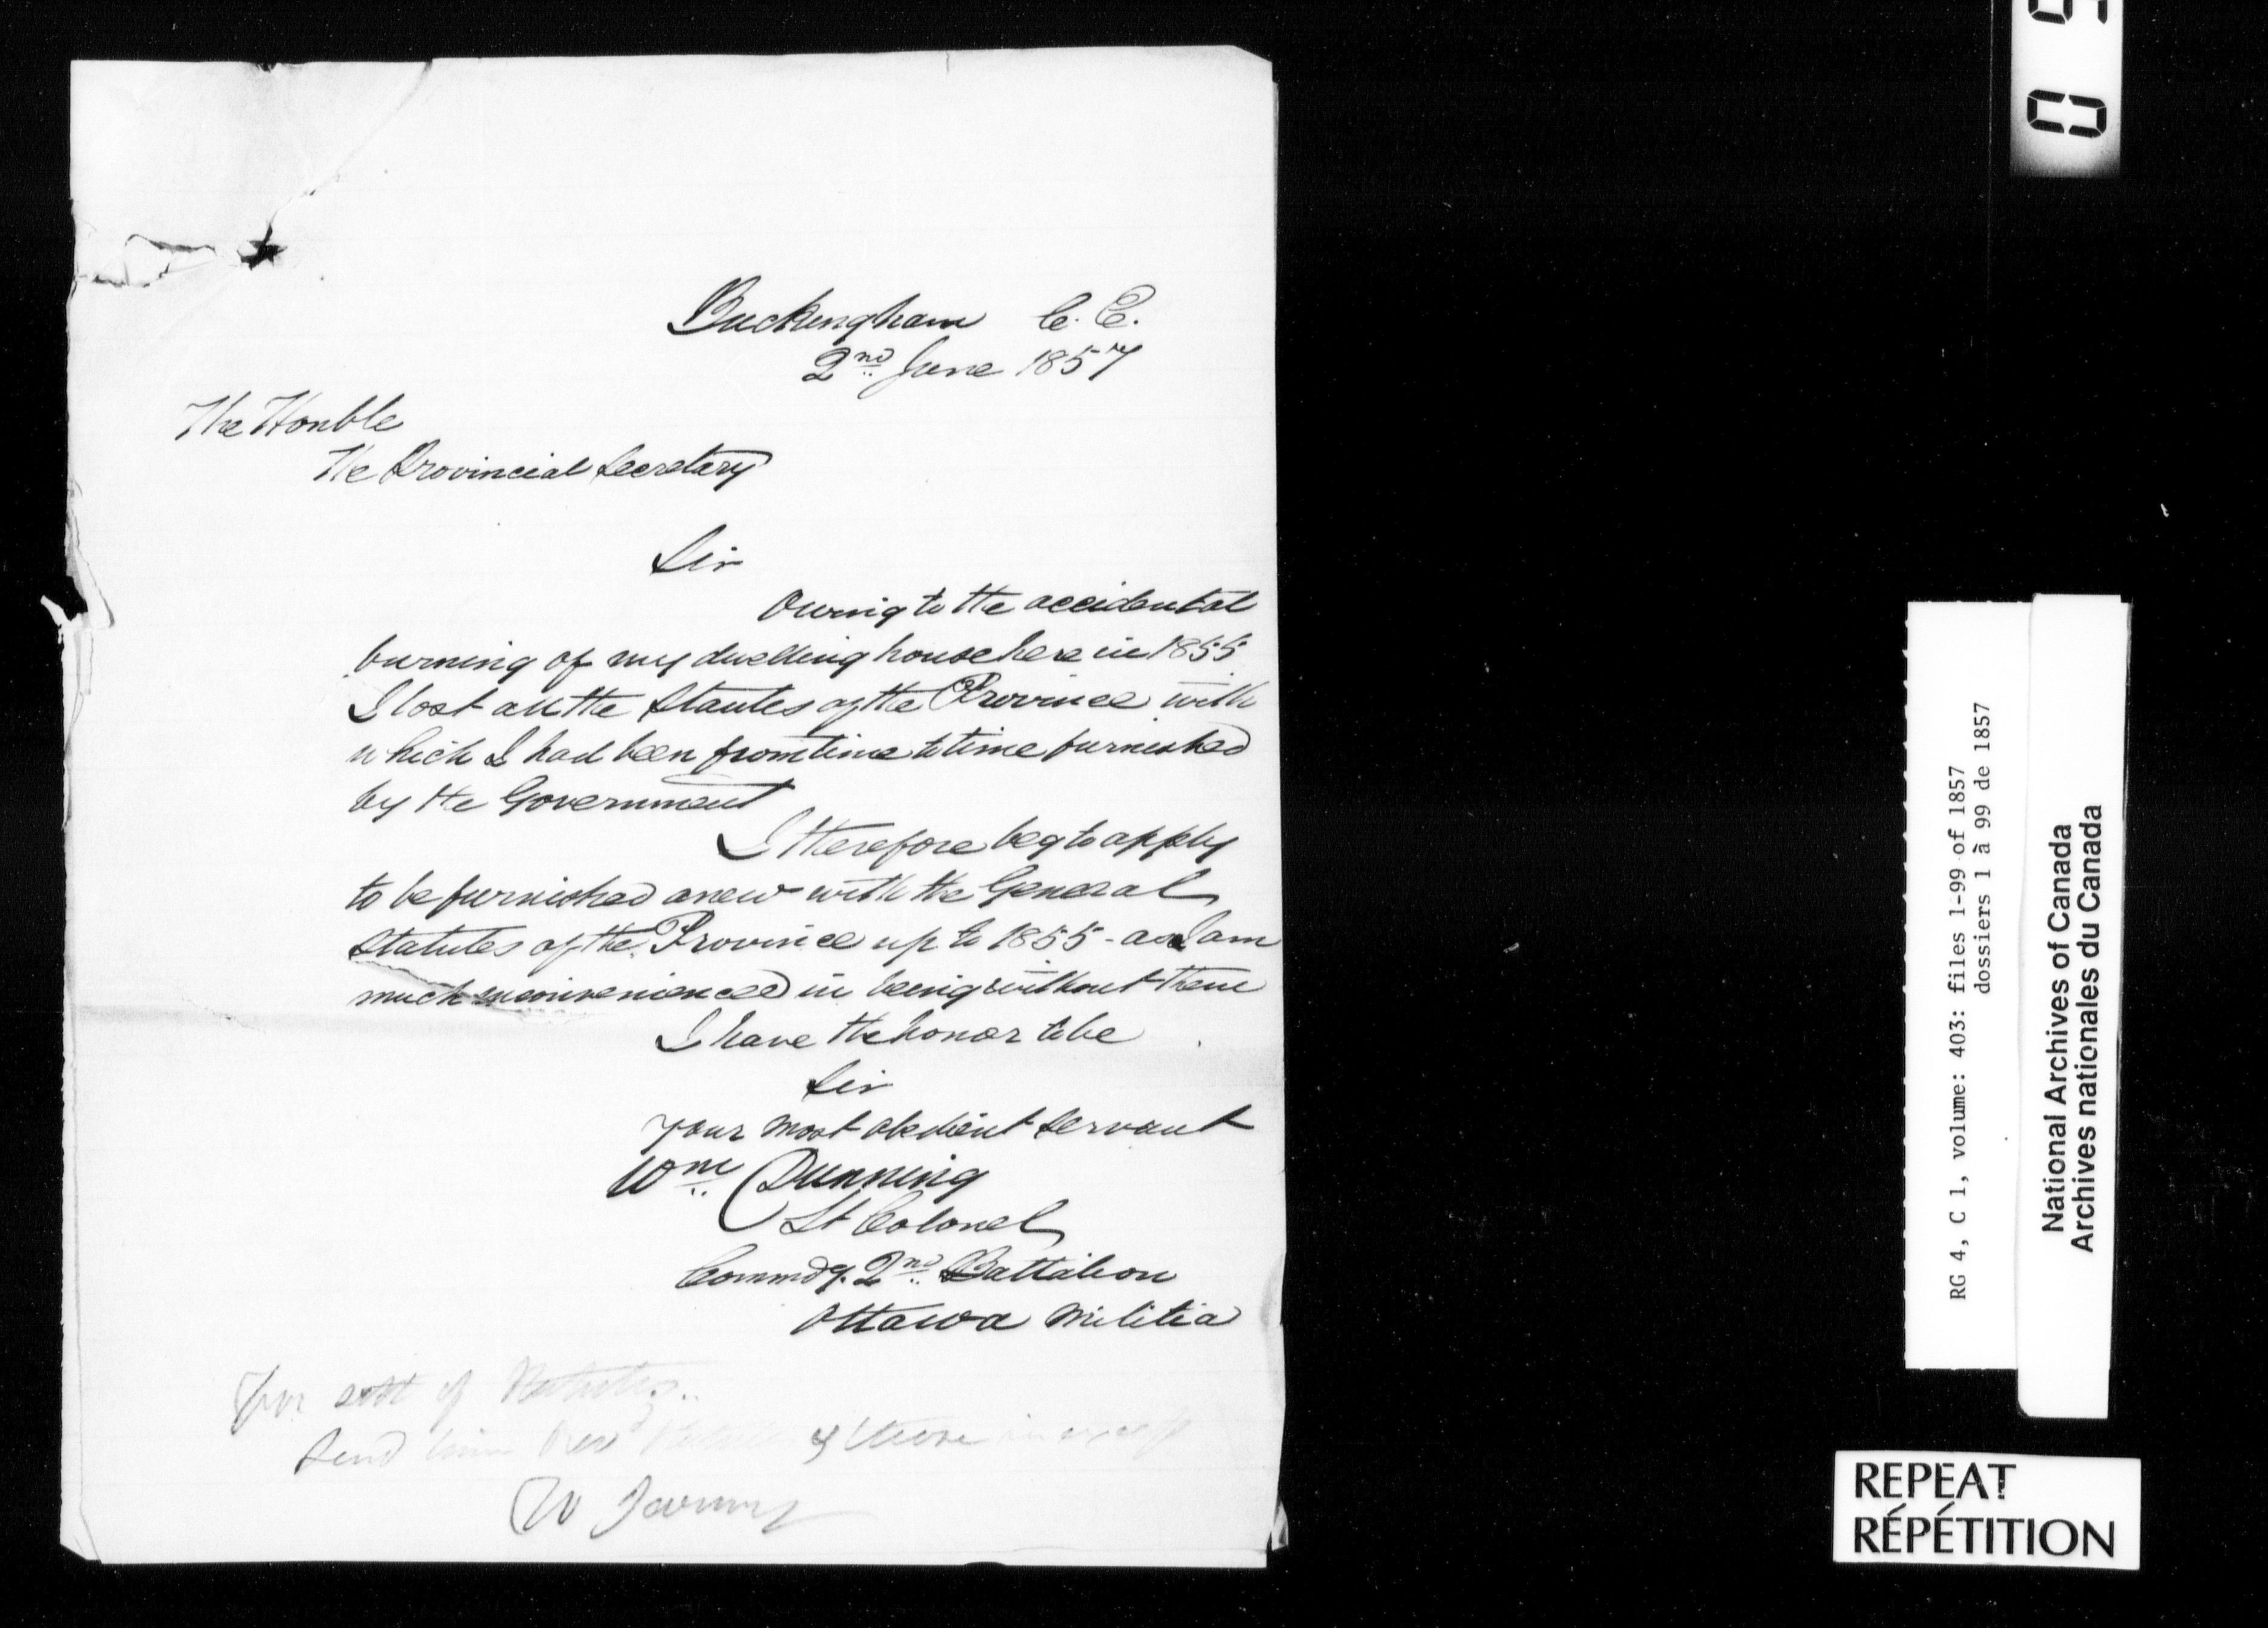 Buckingham C. E.
2nd June 1857
The Honble
The Provincial Secretary
Sir
Owing to the accidental
burning of my dwelling house here in 1855
I lost all the Stautes of the Province with
which I had been from time to time furnished
by the Government
I therefore beg to apply
to be furnished anew with the General
Statutes of the Province up to 1855 - as I am
much inconvenienced in being without them
I have the honor to be
Sir
your most obedient servant
Wm Dunning
Lt Colonel
Commdg. 2nd Battalion
Ottawa Militia
of Statutes..
Send him & those
RG 4, C 1, volume: 403: files 1-99 of 1857
dossiers 1 à 99 de 1857
National Archives of Canada
Archives nationales du Canada
REPEAT
RÉPÉTITION